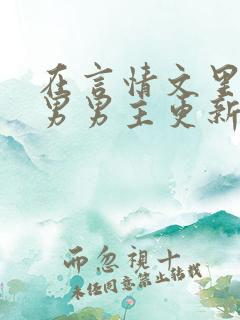 在言情文里
男男主更新
而忽視十
未经同意禁止转载